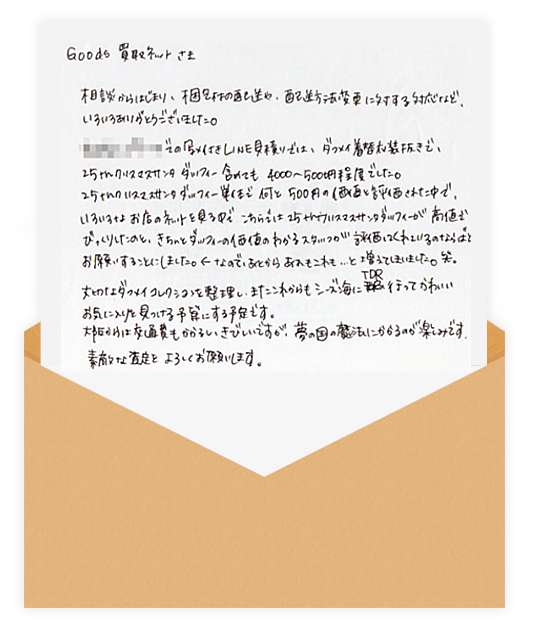 Goods 買取ネットさま
相談からはじまり、梱包材の配送や、配送方法変更に対する対応など、
いろいろありがとうございました。
での写メ付きLINE見積りでは、ダッフィーメイ着替衣装抜きで、
25thクリスマスサンタダッフィー含めても 4000〜5000円程度でした。
25thクリスマスサンタダッフィー単体で 何と500円の価値と評価された中で、
いろいろなお店のネットを見る中で こちらでは25thクリスマスサンタダッフィーが高値で
びっくりしたのと、きちんとダッフィーの価値のわかるスタッフが 評価してくれているのならばと
お願いすることにしました。← なので、あとから あれもこれも…と 増えてしまいました。笑。
大切なダメイコレクションを整理し、またこれからもシーズ海に TDR 行ってかわいい
お気に入りを見つける予定にする予定です。
大阪からは交通費もかかるし、きびしいですが、夢の国の魔法にかかるのが楽しみです。
素敵な査定を よろしくお願いします。